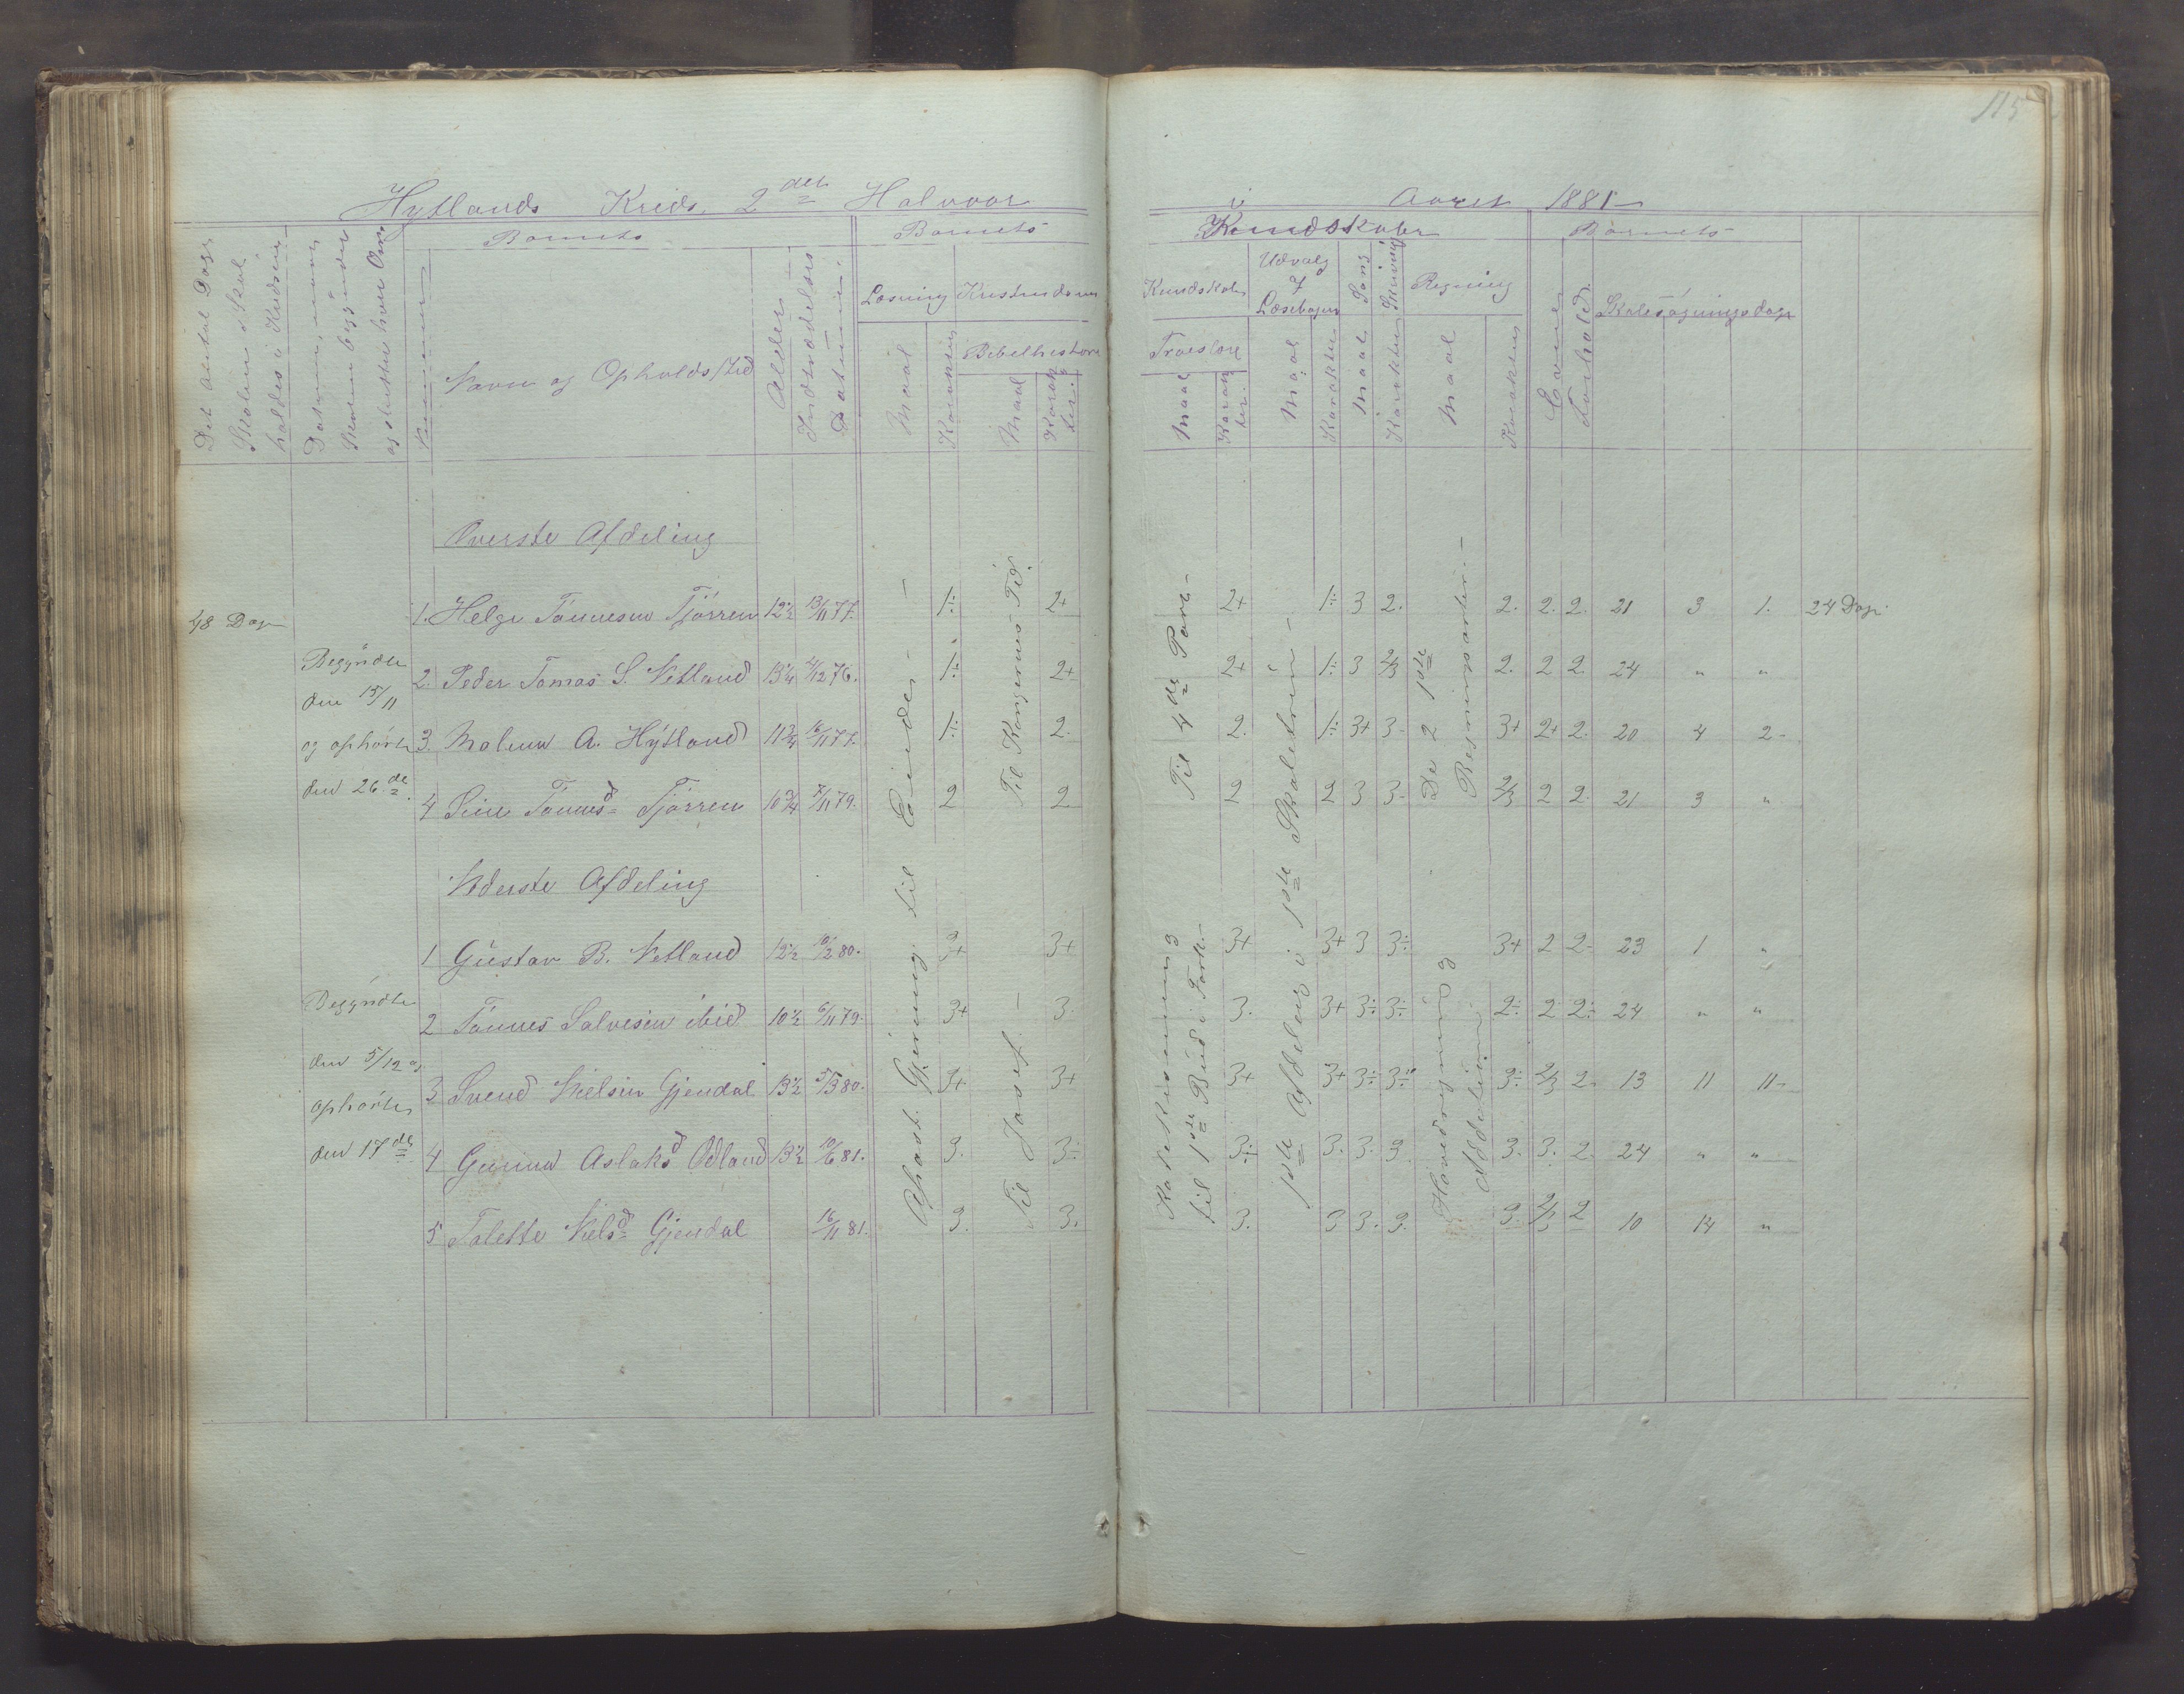 115
Hytlands Kreds. 2den Halvaar i Aaret 1881
Det Antal Dage Skolen skal holdes i Kredsen
Datum, naar Skolen begynder og slutter hver Om
Nummer
Barnets
Navn og Opholdssted
Alder
Indtrædelses Datum
Barnets Kundskaber
Læsning
Maal
Karakter
Kristendoms Kundskab
Bibelhistorie
Maal
Karakter
Troeslære
Maal
Karakter
Udvalg af Læsebogen
Maal
Karakter
Sang
Maal
Skrivning
Karakter
Regning
Maal
Karakter
Barnets
Evner
Forhold
Skolesøgningsdage
Øverste Afdeling
48 Dage
Begyndte den 15/11 og ophørte den 26de
1. Helge Tønnesen Tjørren 12 1/2 13/11 77. 1÷ 2+ 2+ 1÷ 3 2. 2. 2. 2. 21 3 1. 24 Dage
2. Peder Tomas S. Netland 13 1/4 4/12 76. 1÷ 2+ 2+ 1÷ 3 2/3 2. 2 2. 24 " "
3 Malene A. Hytland 11 3/4 16/11 77. 1÷ 2. 2. 1÷ 3+ 3- 3+ 2+ 2. 20 4 2-
4 Sine Tønnesd Tjørren 10 3/4 7/11 79. 2 2 2 2 3 3- 2/3 2 2. 21 3 "
Nederste Afdeling
1 Gustav B. Netland 12 1/2 10/2 80. 3+ 3+ 3+ 3+ 3 3÷ 3+ 2 2- 23 1 "
Begyndte den 5/12 og ophørte den 17de
2 Tønnes Salvesen ibid 10 1/2 6/11 79. 3+ 3. 3. 3+ 3÷ 3÷ 2÷ 2 2÷ 24 " "
3 Svend Nielsen Gjendal 13 1/2 5/3 80. 3+ 3+ 3+ 3+ 3÷ 3÷ 3÷ 2/3 2- 13 11 11-
4 Gunne Aslaksd Ødland 13 1/2 10/6 81. 3. 3÷ 3÷ 3. 3. 3 3. 3. 2. 24 " "
5 Talette Nielsd Gjendal 16/11 81. 3. 3. 3. 3 3. 3. 3. 2/3 2 10 14 "
Aphavt. Gjerning. til Enden -
Til Kongernes Tid.
Til Josef -
Til 4de Part -
Katekismen til 1ste Bud i Fork. -
1ste Afdeling i 1ste Skoletrin -
De 2 1ste Regningsarter -
Hovedregning Addition